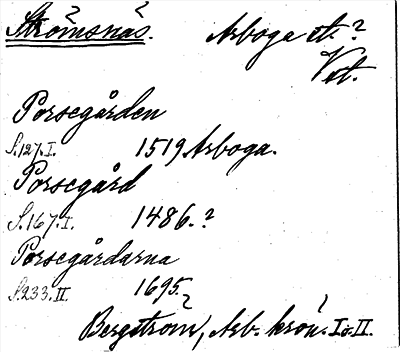 Strömsnäs. Arboga st.?
Vst.
Porsegården
S.127.I. 1519 Arboga.
Porsegård
S.167.I. 1486.?
Porsegårdarna
S.233.II. 1695.
Bergström, Arb. krön. I o. II.